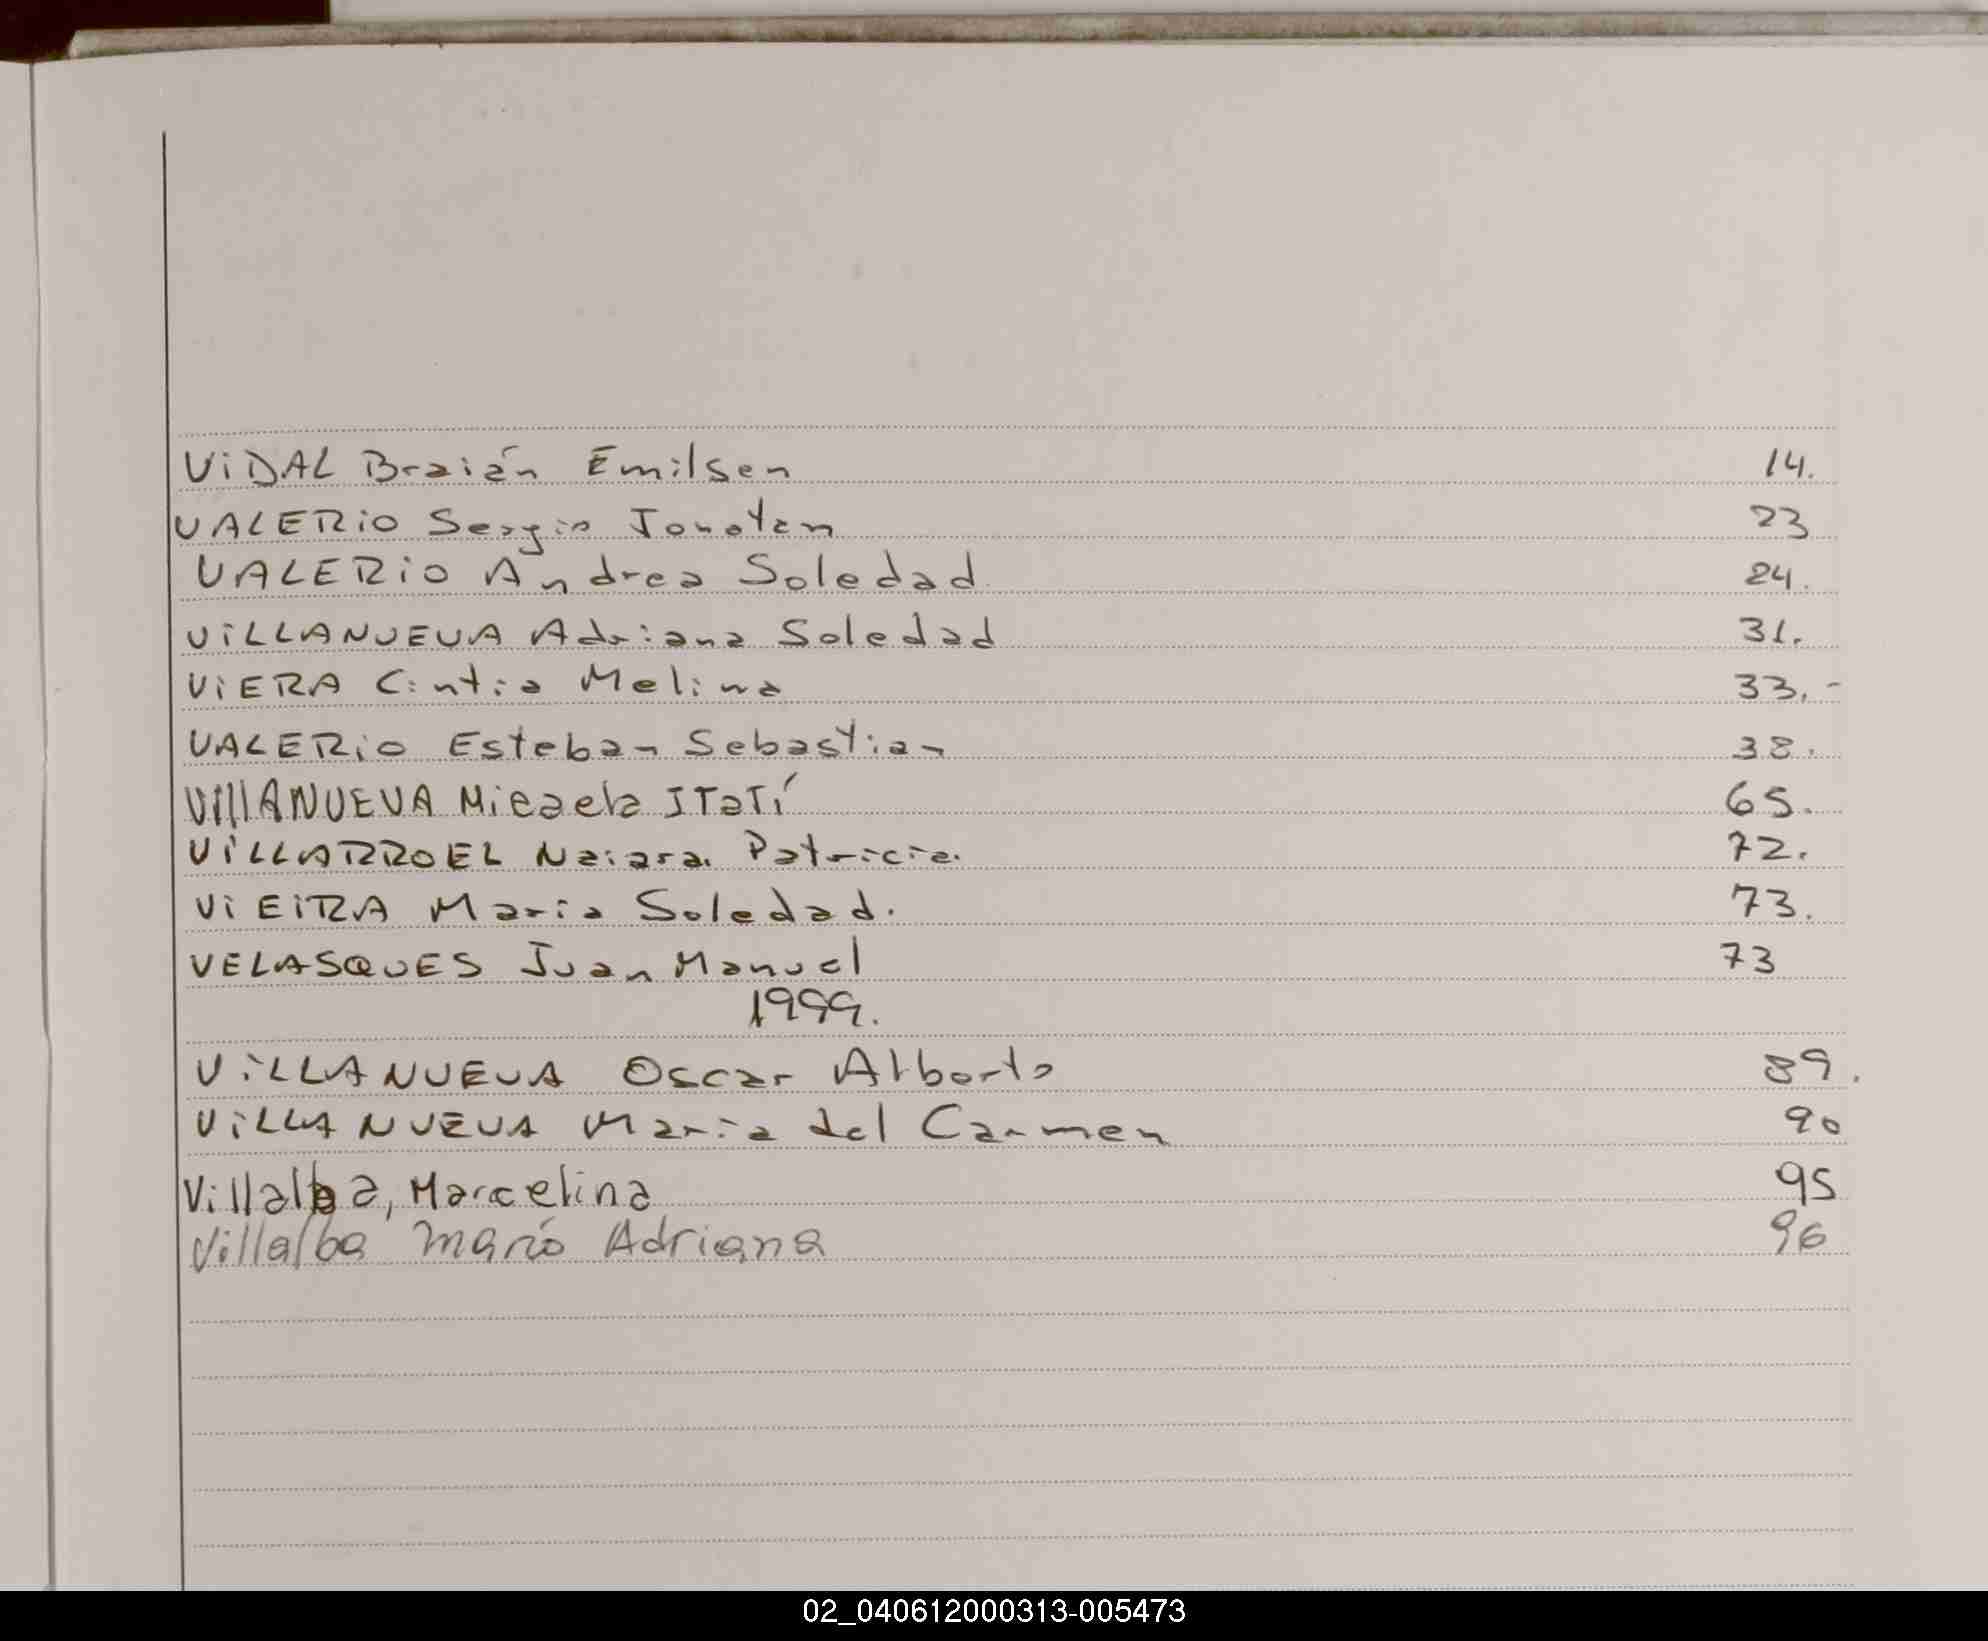 ViDAL Braián Emilsen 14.
VALERiO Sergio Jonotan 23
VALERiO Andrea Soledad 24.
ViLLANUEVA Adriana Soledad 31.
ViERA Cintia Melina 33.-
VALERiO Esteban Sebastian 38.
VillANUEVA Micaela ITaTí 65.
ViLLARROEL Naiara Patricia. 72.
ViEiRA Maria Soledad. 73.
VELASQUES Juan Manuel 73
1999.
ViLLANUEVA Oscar Alberto 89.
ViLLANUEVA Maria del Carmen 90
Villalba, Marcelina 95
Villalba María Adriana 96
02_040612000313-005473